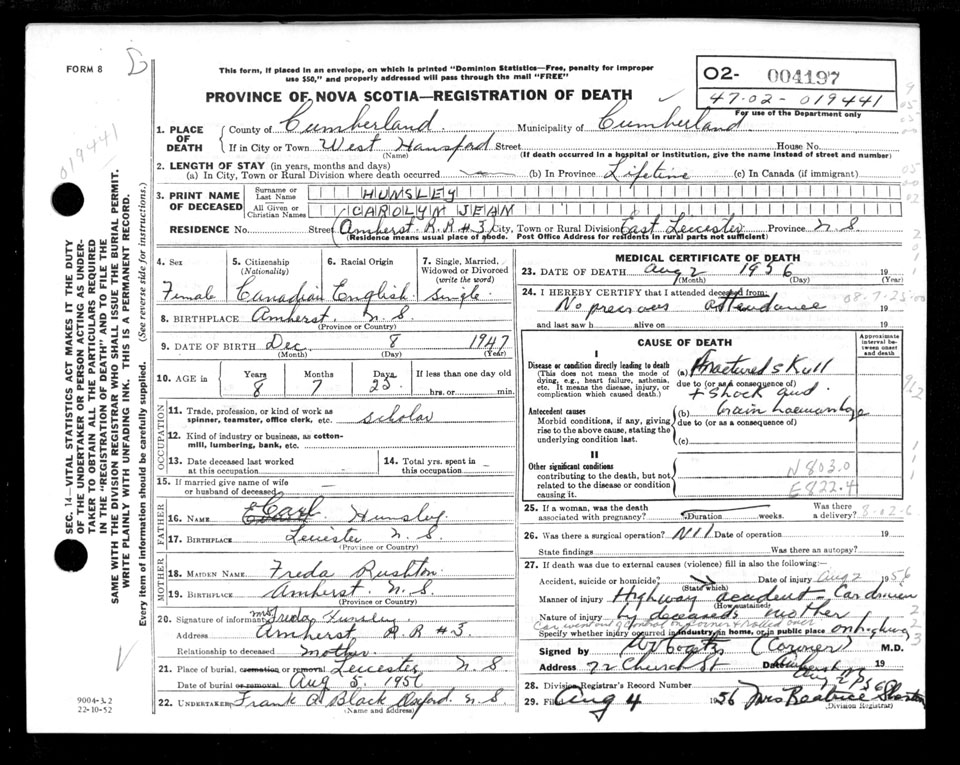 FORM 8
This form, if placed in an envelope, on which is printed "Dominion Statistics—Free, penalty for improper
use $50," and properly addressed will pass through the mail "FREE"
O2- 004197
47-02-019441
For use of the Department only
PROVINCE OF NOVA SCOTIA—REGISTRATION OF DEATH
019441
SEC. 14—VITAL STATISTICS ACT MAKES IT THE DUTY
OF THE UNDERTAKER OR PERSON ACTING AS UNDER-
TAKER TO OBTAIN ALL THE PARTICULARS REQUIRED
IN THE "REGISTRATION OF DEATH" AND TO FILE THE
SAME WITH THE DIVISION REGISTRAR WHO SHALL ISSUE THE BURIAL PERMIT.
WRITE PLAINLY WITH UNFADING INK. THIS IS A PERMANENT RECORD.
Every item of information should be carefully supplied. (See reverse side for instructions.)
1. PLACE OF DEATH
County of Cumberland Municipality of Cumberland
If in City or Town West Hansford Street House No.
(Name) (If death occurred in a hospital or institution, give the name instead of street and number)
2. LENGTH OF STAY (in years, months and days)
(a) In City, Town or Rural Division where death occurred (b) In Province Lifetime (c) In Canada (if immigrant)
3. PRINT NAME OF DECEASED
Surname or Last Name HUNSLEY
All Given or Christian Names CAROLYN JEAN
RESIDENCE No. Street Amherst R.R #3 City, Town or Rural Division East Leicester Province N.S
(Residence means usual place of abode. Post Office Address for residents in rural parts not sufficient)
4. Sex
Female
5. Citizenship
(Nationality)
Canadian
6. Racial Origin
English
7. Single, Married, Widowed or Divorced
(write the word)
single
8. BIRTHPLACE Amherst N.S.
(Province or Country)
9. DATE OF BIRTH Dec. 8 1947
(Month) (Day) (Year)
10. AGE in Years Months Days If less than one day old
8 7 25 hrs. or min.
OCCUPATION
11. Trade, profession, or kind of work as
spinner, teamster, office clerk, etc. scholar
12. Kind of industry or business, as cotton-
mill, lumbering, bank, etc.
13. Date deceased last worked
at this occupation
14. Total yrs. spent in
this occupation
15. If married give name of wife
or husband of deceased
FATHER
16. NAME Earl Hunsley
17. BIRTHPLACE Leicester N.S
(Province or Country)
MOTHER
18. MAIDEN NAME Freda Rushton
19. BIRTHPLACE Amherst N.S.
(Province or Country)
20. Signature of informant Mrs Freda Hunsley
Address Amherst R R #3
Relationship to deceased mother
21. Place of burial, cremation or removal Leicester N.S
Date of burial or removal Aug 5. 1956
22. UNDERTAKER Frank A Black Oxford N.S
(Name and address)
9004-3.2
22-10-52
MEDICAL CERTIFICATE OF DEATH
23. DATE OF DEATH Aug 2 1956 19
(Month) (Day) (Year)
24. I HEREBY CERTIFY that I attended deceased from:
No previous attendance 19
and last saw h alive on 19
CAUSE OF DEATH
Approximate interval between onset and death
I
Disease or condition directly leading to death
(This does not mean the mode of
dying, e.g., heart failure, asthenia,
etc. It means the disease, injury, or
complication which caused death.)
(a) Fractured skull
due to (or as a consequence of)
+ Shock and
Antecedent causes
Morbid conditions, if any, giving
rise to the above cause, stating the
underlying condition last.
(b) brain haemorrhage
due to (or as a consequence of)
(c)
II
Other significant conditions
contributing to the death, but not
related to the disease or condition
causing it.
N 803.0
E822.4
25. If a woman, was the death
associated with pregnancy? (Duration weeks. Was there
a delivery? 8-02-6
26. Was there a surgical operation? Nil Date of operation 19
State findings Was there an autopsy?
27. If death was due to external causes (violence) fill in also the following:
Accident, suicide or homicide? Date of injury Aug 2 1956
(State which)
Manner of injury Highway accident - Car driven
(How sustained)
Nature of injury by deceaseds mother
Car went out of control on corner & rolled over
Specify whether injury occurred in industry, in home, or in public place on highway
Signed by (Coroner) M.D.
Address 72 Church St Date 19
Aug 2 1956
28. Division Registrar's Record Number
29. Filed Aug 4 1956 Mrs Beatrice
(Division Registrar)